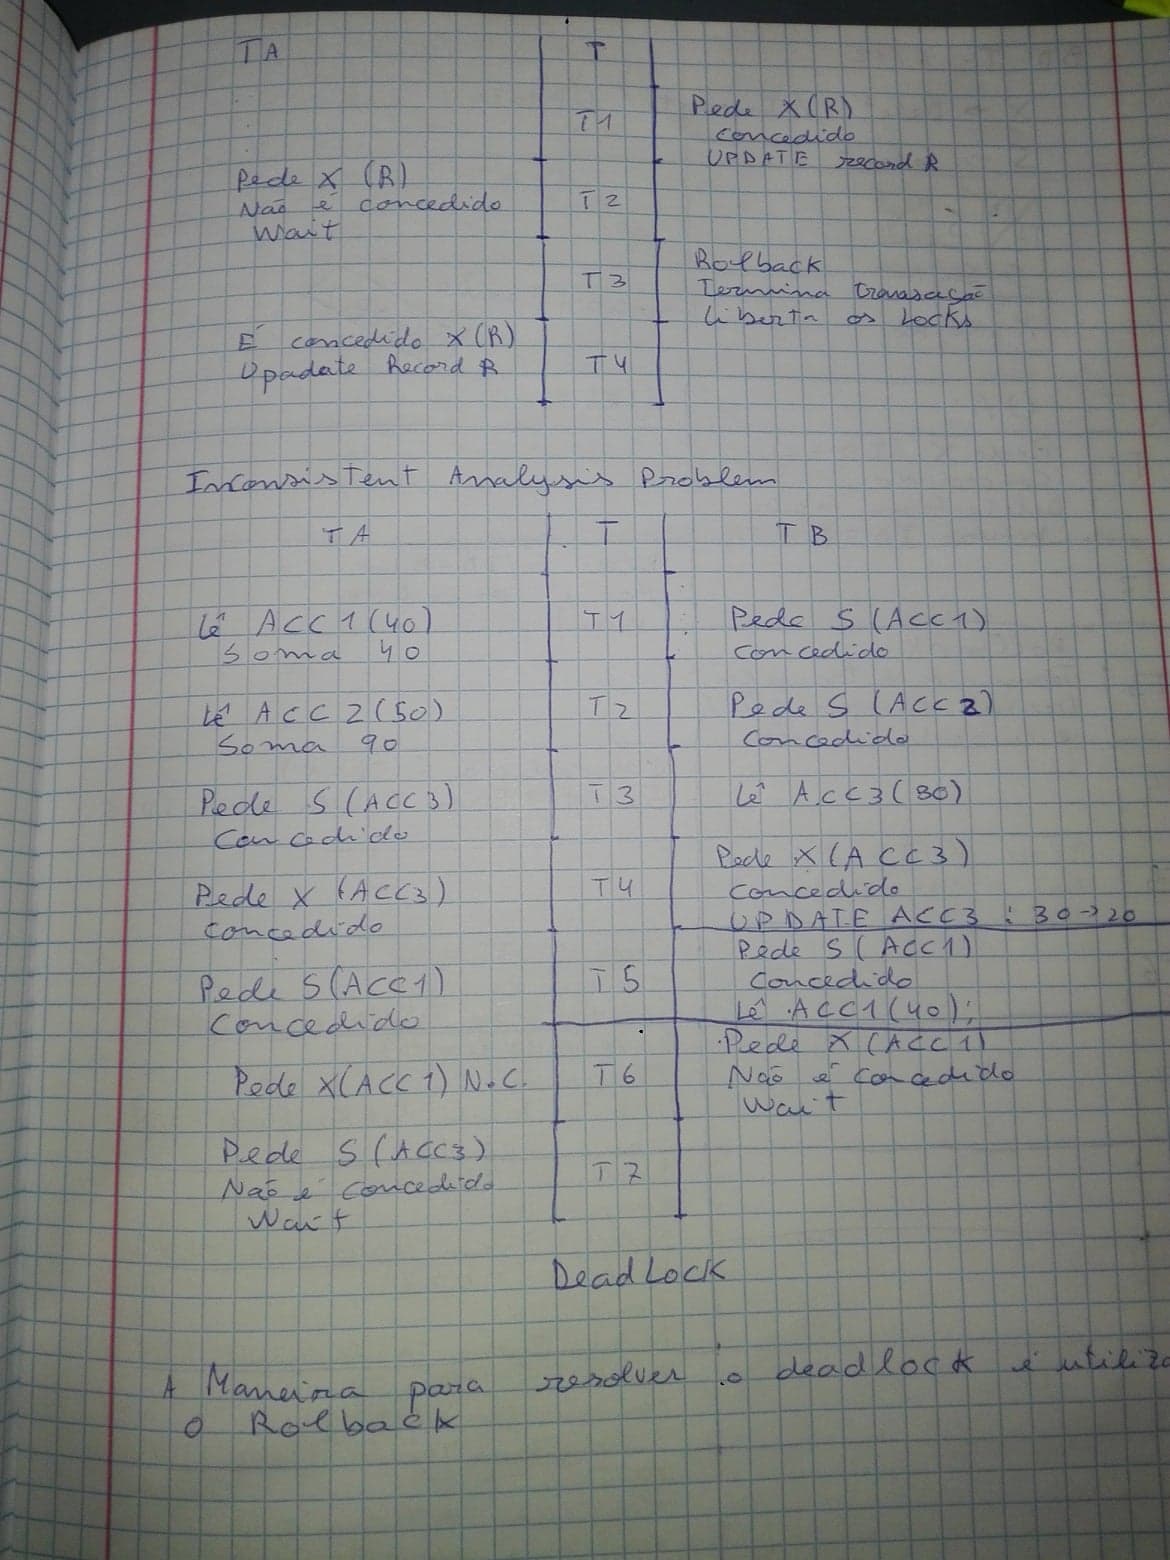 TA T
T1
Pede X (R)
concedido
UPDATE record R
Pede X (R)
Não é concedido
Wait
T2
T3
Rollback
Termina transação
liberta os Locks
É concedido X(R)
Upadate Record R
T4
Inconsistent Analysis Problem
TA T TB
Lê ACC1(40)
Soma 40
T1
Pede S (ACC1)
concedido
Lê ACC2(50)
Soma 90
T2
Pede S (ACC2)
concedido
Pede S (ACC3)
Concedido
T3
Lê ACC3(30)
Pede X (ACC3)
concedido
T4
Pede X(ACC3)
concedido
UPDATE ACC3 : 30→20
Pede S(ACC1)
Concedido
T5
Pede S(ACC1)
Concedido
Lê ACC1(40);
Pede X(ACC1) N.C.
T6
Pede X(ACC1)
Não é concedido
Wait
Pede S (ACC3)
Não é concedido
Wait
T7
DeadLock
A Maneira para resolver o deadlock é
o Rolback